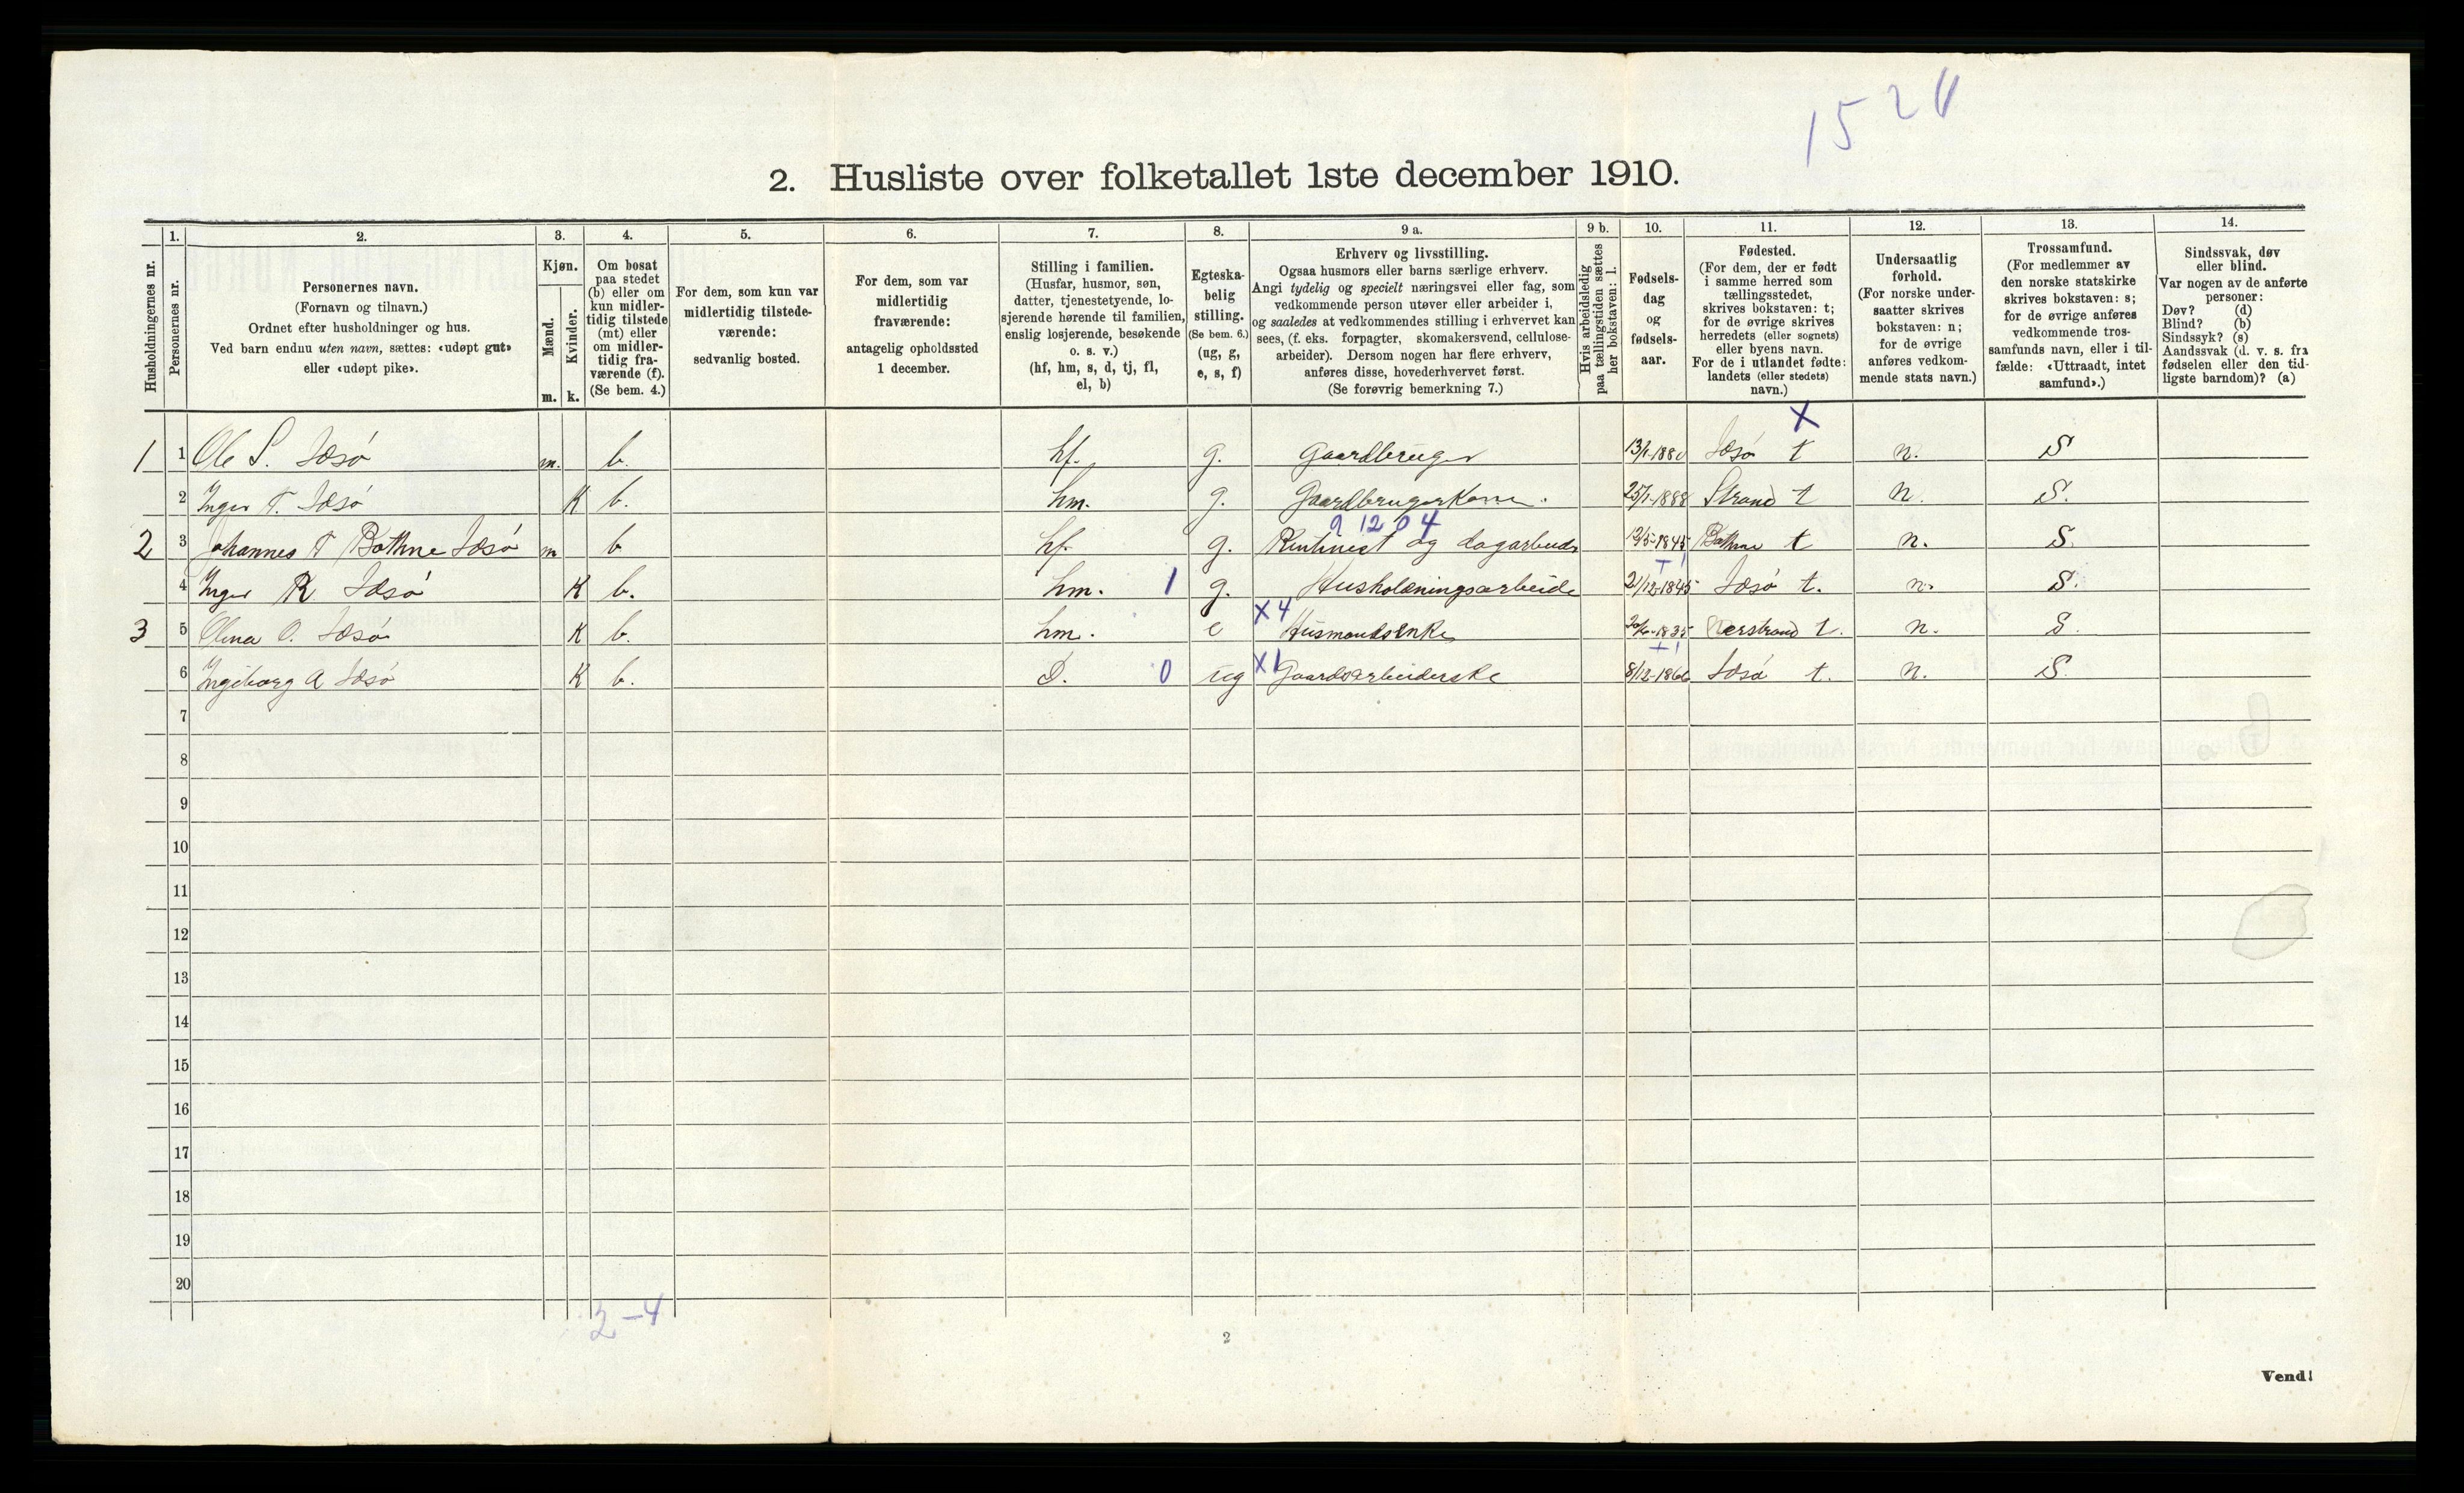 1521
2. Husliste over folketallet 1ste december 1910.
Husholdningernes nr.
1.
Personernes nr.
2.
Personernes navn.
(Fornavn og tilnavn.)
Ordnet efter husholdninger og hus.
Ved barn endnu uten navn, sættes: «udøpt gut»
eller «udøpt pike».
3.
Kjøn.
Mænd.
Kvinder.
m. k.
4.
Om bosat
paa stedet
(b) eller om
kun midler-
tidig tilstede
(mt) eller
om midler-
tidig fra-
værende (f).
(Se bem. 4.)
5.
For dem, som kun var
midlertidig tilstede-
værende:
sedvanlig bosted.
6.
For dem, som var
midlertidig
fraværende:
antagelig opholdssted
1 december.
7.
Stilling i familien.
(Husfar, husmor, søn,
datter, tjenestetyende, lo-
sjerende hørende til familien,
enslig losjerende, besøkende
o. s. v.)
(hf, hm, s, d, tj, fl,
el, b)
8.
Egteska-
belig
stilling.
(Se bem. 6.)
(ug, g,
e, s, f)
9 a.
Erhverv og livsstilling.
Ogsaa husmors eller barns særlige erhverv.
Angi tydelig og specielt næringsvei eller fag, som
vedkommende person utøver eller arbeider i,
og saaledes at vedkommendes stilling i erhvervet kan
sees, (f. eks. forpagter, skomakersvend, cellulose-
arbeider). Dersom nogen har flere erhverv,
anføres disse, hovederhvervet først.
(Se forøvrig bemerkning 7.)
9 b.
Hvis arbeidsledig
paa tællingstiden sættes
her bokstaven: l.
10.
Fødsels-
dag
og
fødsels-
aar.
11.
Fødested.
(For dem, der er født
i samme herred som
tællingsstedet,
skrives bokstaven: t;
for de øvrige skrives
herredets (eller sognets)
eller byens navn.
For de i utlandet fødte:
landets (eller stedets)
navn.)
12.
Undersaatlig
forhold.
(For norske under-
saatter skrives
bokstaven: n;
for de øvrige
anføres vedkom-
mende stats navn.)
13.
Trossamfund.
(For medlemmer av
den norske statskirke
skrives bokstaven: s;
for de øvrige anføres
vedkommende tros-
samfunds navn, eller i til-
fælde: «Uttraadt, intet
samfund».)
14.
Sindssvak, døv
eller blind.
Var nogen av de anførte
personer:
Døv? (d)
Blind? (b)
Sindssyk? (s)
Aandssvak (d. v. s. fra
fødselen eller den tid-
ligste barndom)? (a)
X
1 1 Ole S. Jøsø m. b. hf. g. Gaardbruger 13/1-1880 Jøsø t n. S
2 Inger T. Jøsø K b. hm. g. Gaardbrugerkone. 25/1-1888 Strand t n. S.
9 12 0 4
2 3 Johannes T Bøthne Jøsø m b hf. g. og dagarbeide 1845 Bøthne t n. S.
4 Inger R. Jøsø K b. hm. 1 g. Husholdningsarbeide 21/12-1845 Jøsø t. n. S.
X 4
3 5 Olena O. Jøsø K b. hm. e Husmandsenke 1835 Nerstrand t. n. S.
6 Ingeborg A Jøsø K b. D. 0 ug X 1 Gaardsarbeiderske 8/12-1866 Jøsø t. n. S.
7
8
9
10
11
12
13
14
15
16
17
18
19
20
2-4
2
Vend!